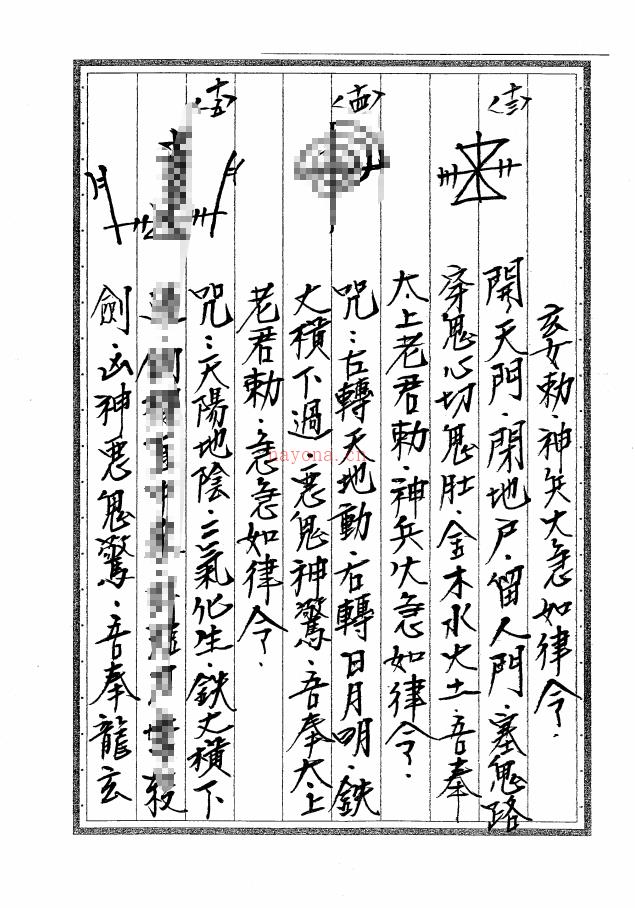 玄女勅.神兵火急如律令.
〈十三〉
開天門.閉地戶.留人門.塞鬼路
穿鬼心切鬼肚.金木水火土.吾奉
太上老君勅.神兵火急如律令.
〈十四〉
咒:左轉天地動.右轉日月明.鉄
丈橫下過.惡鬼神驚.吾奉太上
老君勅.急急如律令.
〈十五〉
咒:天陽地陰.二氣化生.鉄丈橫下
殺
劍.凶神惡鬼驚.吾奉龍玄
nayona.cn